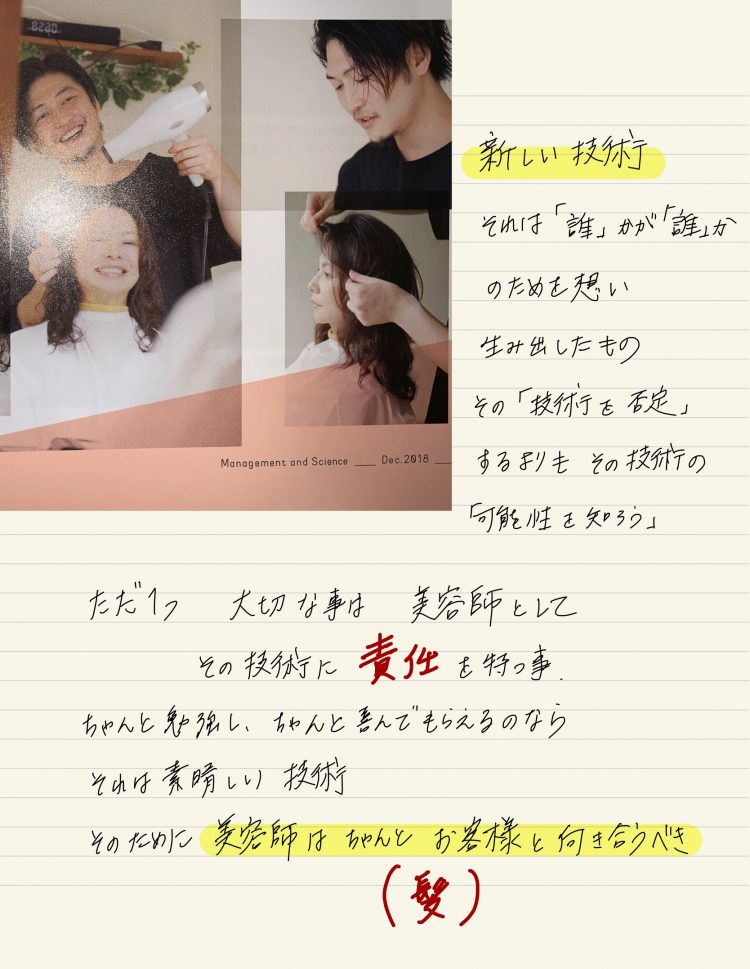 0580
Management and Science ___ Dec.2018 __
新しい技術
それは「誰」かが「誰」か
のためを想い
生み出したもの
その「技術を否定」
するよりも その技術の
「可能性を知ろう」
ただ1つ 大切な事は 美容師として
その技術に 責任 を持つ事.
ちゃんと勉強し、ちゃんと喜んでもらえるのなら
それは素晴しい 技術
そのために 美容師は ちゃんと お客様と向き合うべき
(髪)